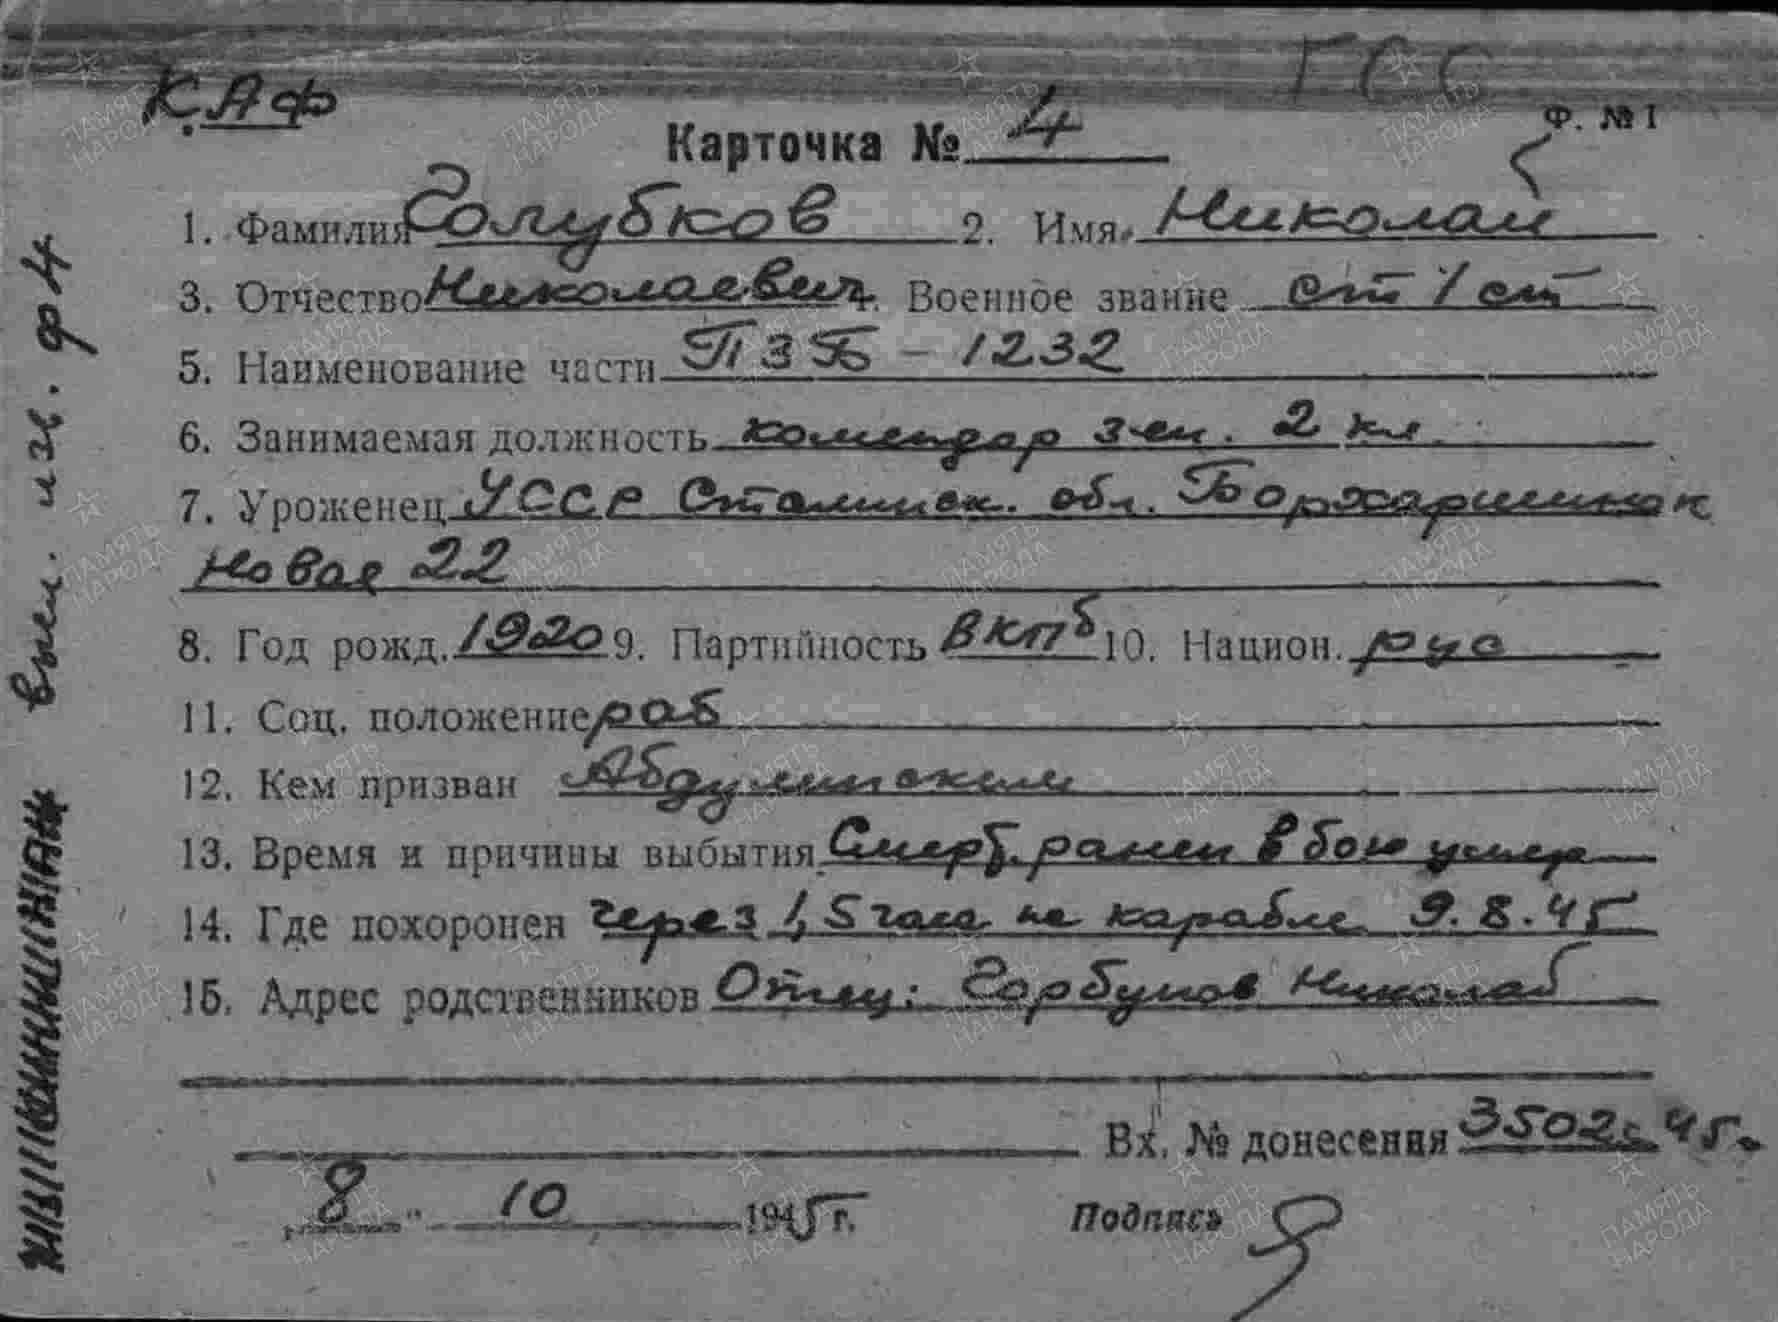 ГСС
К.АФ
Ф. № 1
Карточка № 4
1. Фамилия Голубков 2. Имя Николай
3. Отчество Николаевич 4. Военное звание ст 1 ст
5. Наименование части ПЗБ - 1232
6. Занимаемая должность комендор зен. 2 кл.
7. Уроженец УССР Сталинск. обл.
Новая 22
8. Год рожд. 1920 9. Партийность ВКПб 10. Национ. рус
11. Соц. положение раб
12. Кем призван Абдулинским
13. Время и причины выбытия Смерт. ранен в бою умер
14. Где похоронен через 1,5 часа на карабле 9.8.45
15. Адрес родственников Отец: Горбунов Николай
Вх. № донесения 3502с 45г
„8" 10 1945 г. Подпись
вкл. изв. ф 4
ПАМЯТЬ НАРОДА